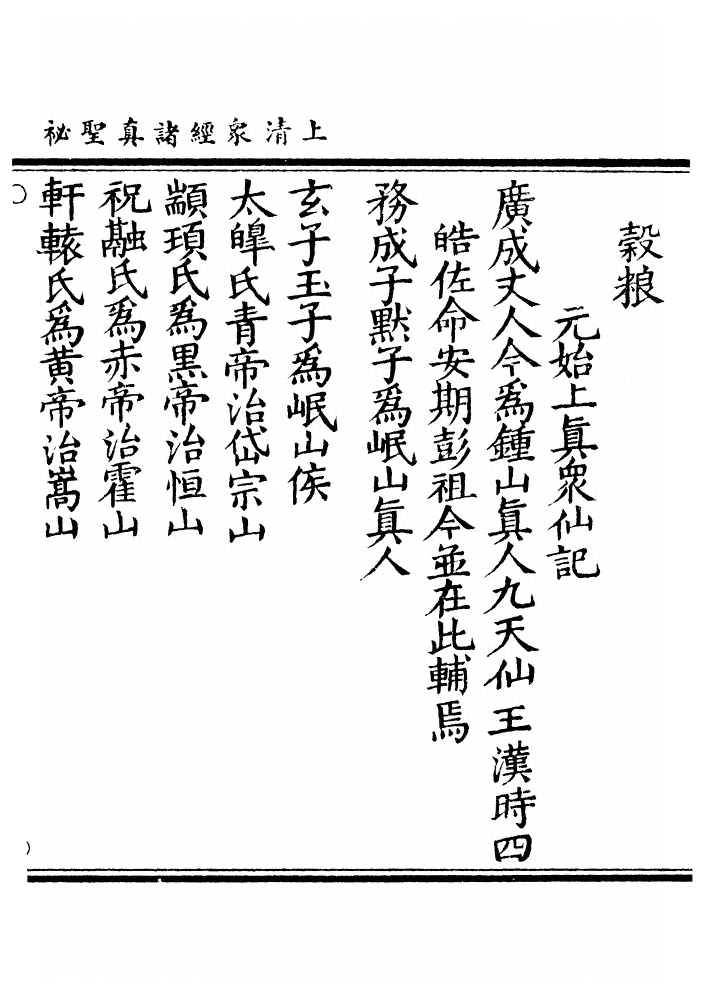 上清衆經諸真聖祕
穀粮
元始上眞衆仙記
廣成丈人今爲鍾山眞人九天仙王漢時四
皓佐命安期彭祖今並在此輔焉
務成子默子爲岷山眞人
玄子玉子爲岷山侯
太皡氏青帝治岱宗山
顓頊氏爲黒帝治恒山
祝融氏爲赤帝治霍山
軒轅氏爲黄帝治嵩山